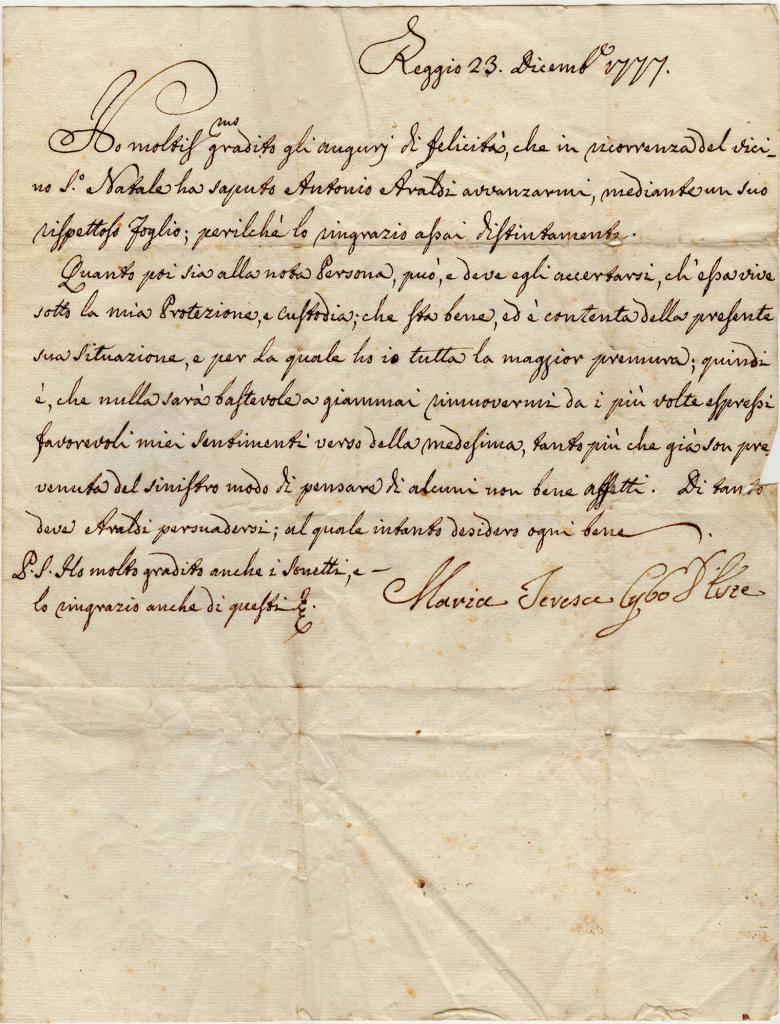 Reggio 23. Dicemb.e 1777.
Ho moltiss.mo gradito gli augurj di felicità, che in ricorrenza del vici-
no S.o Natale ha saputo Antonio Araldi avvanzarmi, mediante un suo
rispettoso foglio; perilchè lo ringrazio assai distintamente.
Quanto poi sia alla nota Persona, può, e deve egli accertarsi, ch'essa vive
sotto la mia Protezione, e custodia; che sta bene, ed è contenta della presente
sua situazione, e per la quale ho io tutta la maggior premura; quindi
è, che nulla sarà bastevole a giammai rimuovermi da i più volte espressi
favorevoli miei sentimenti verso della medesima, tanto più che già son pre
venuta del sinistro modo di pensare di alcuni non bene affetti. Di tanto
deve Araldi persuadersi; al quale intanto desidero ogni bene.
P.S. Ho molto gradito anche i sonetti, e -
lo ringrazio anche di questi
Maria Teresa Cybo D'Este